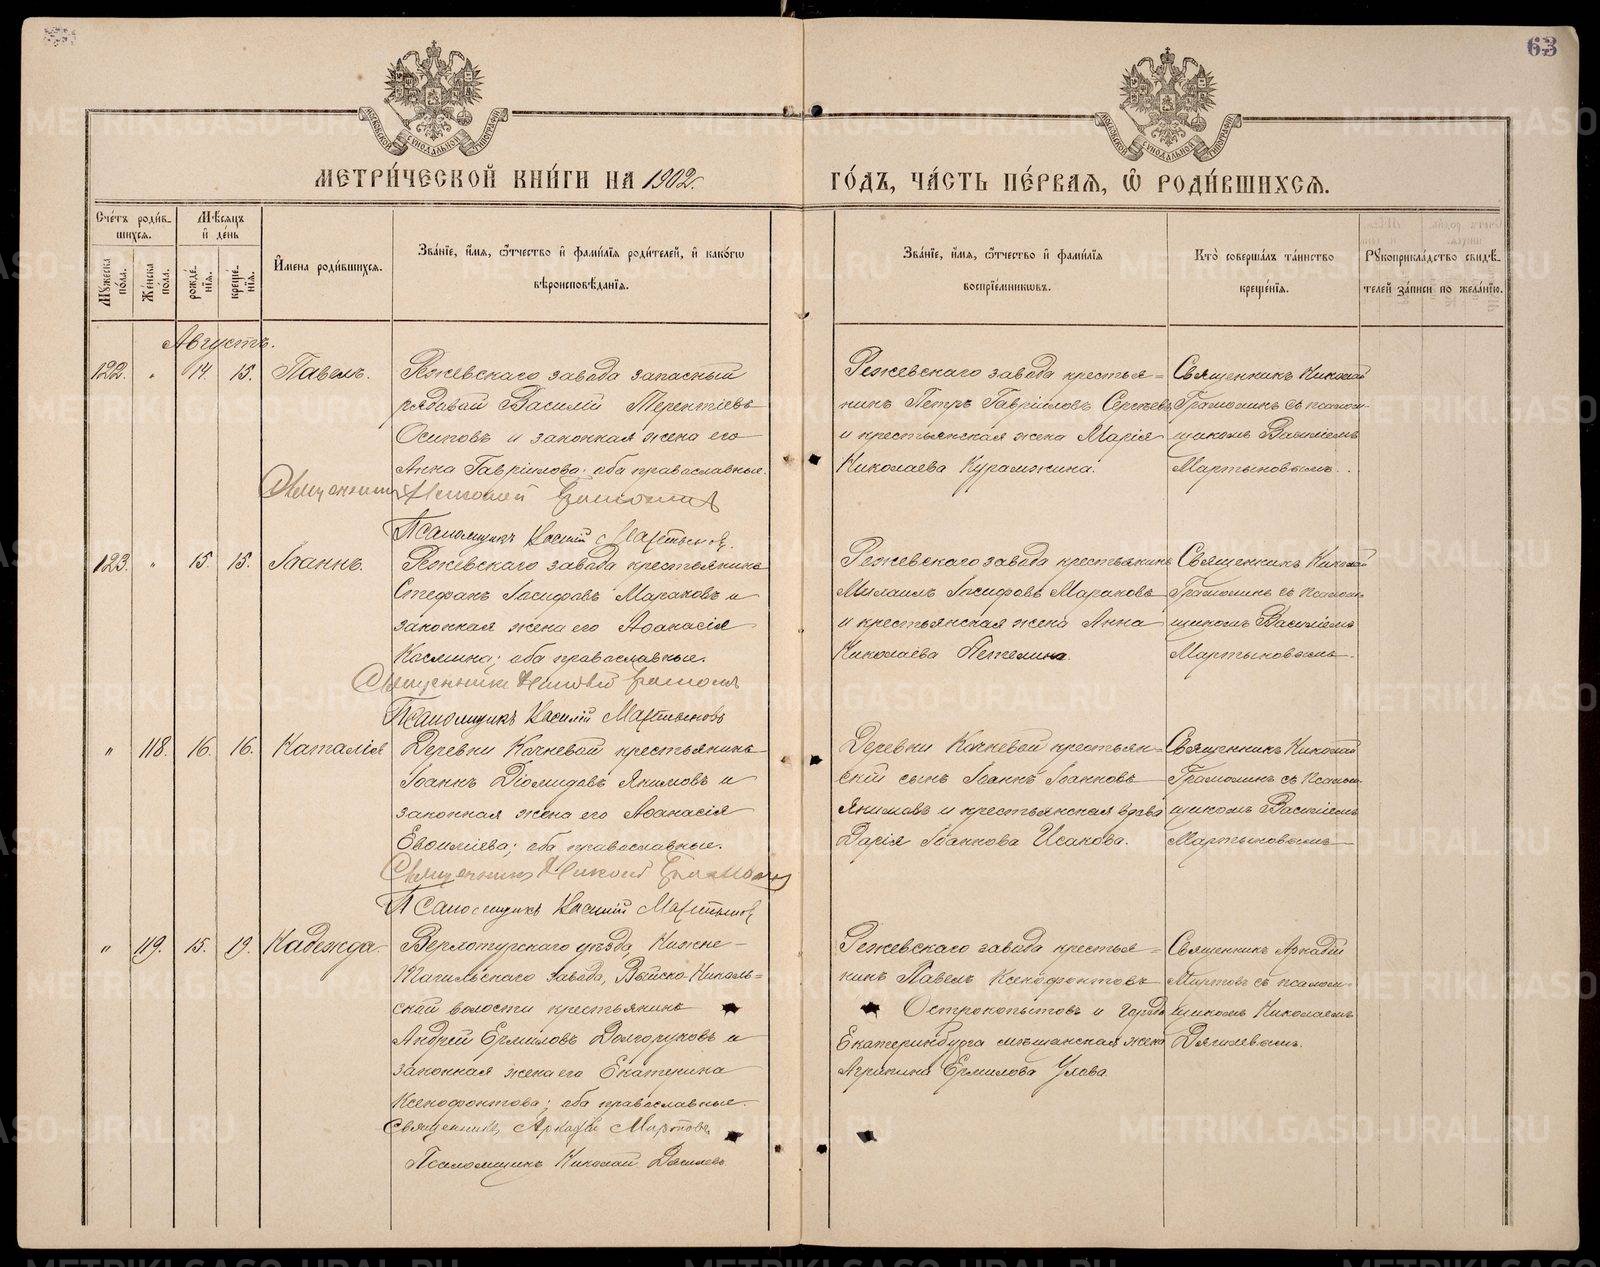 63
МОСКОВСКОЙ СѴНОДАЛЬНОЙ ТИПОГРАФІИ
МОСКОВСКОЙ СѴНОДАЛЬНОЙ ТИПОГРАФІИ
МЕТРИ́ЧЕСКОЙ КНИ́ГИ НА 1902.
ГО́ДЪ, ЧА́СТЬ ПЕ́РВАѦ, Ѡ҆ РОДИ́ВШИХСѦ.
Сче́тъ роди́в-
шихся.
Мѣ́сяцъ
и҆ де́нь
Мꙋ́жеска по́ла.
Же́нска по́ла.
рожде́-нїя.
креще́-нїя.
И҆мена роди́вшихся.
Зва́нїе, и҆́мя, ѻ҆́тчество и҆ фами́лїя роди́телей, и҆ како́гѡ
вѣроисповѣ́данїя.
Зва́нїе, и҆́мя, ѻ҆́тчество и҆ фами́лїя
воспрїе́мникѡвъ.
Кто̀ соверша́лъ та́инство
креще́нїя.
Рꙋкоприкла́дство свидѣ́-
телей за́писи по жела́нїю.
Августъ.
122. " 14. 15. Павелъ.
Режевскаго завода запасный
рядовой Василій Терентіевъ
Осиповъ и законная жена его
Анна Гавріилова; оба православные.
Священникъ Николай Грамолинъ
Псаломщикъ Василій Мартыновъ.
Режевскаго завода крестья=
нинъ Петръ Гавріиловъ Сергѣевъ
и крестьянская жена Марія
Николаева Куражкина.
Священникъ Николай
Грамолинъ съ псалом-
щикомъ Василіемъ
Мартыновымъ.
123. " 15. 15. Іоаннъ.
Режевскаго завода крестьянинъ
Стефанъ Іосифовъ Мараковъ и
законная жена его Аѳанасія
Космина; оба православные.
Священникъ Николай Грамолинъ
Псаломщикъ Василій Мартыновъ
Режевскаго завода крестьянинъ
Михаилъ Іосифовъ Мараковъ
и крестьянская жена Анна
Николаева Пепелина.
Священникъ Николай
Грамолинъ съ псалом-
щикомъ Василіемъ
Мартыновымъ.
" 118. 16. 16. Наталія
Деревни Кочневой крестьянинъ
Іоаннъ Діомидовъ Якимовъ и
законная жена его Аѳанасія
Евѳиміева; оба православные.
Священникъ Николай Грамолинъ
Псаломщикъ Василій Мартыновъ
Деревни Кочневой крестьян=
скій сынъ Іоаннъ Іоанновъ
Якимовъ и крестьянская вдова
Дарія Іоаннова Исакова.
Священникъ Николай
Грамолинъ съ псалом-
щикомъ Василіемъ
Мартыновымъ
" 119. 15. 19. Надежда.
Верхотурскаго уѣзда, Нижне-
Тагильскаго завода, Выйско-Николь=
ской волости крестьянинъ
Андрей Ермиловъ Долгоруковъ и
законная жена его Екатерина
Ксенофонтова; оба православные.
Священникъ Аркадій Мартовъ
Псаломщикъ Николай Дягилевъ
Режевскаго завода крестья=
нинъ Павелъ Ксенофонтовъ
Острокопытовъ и города
Екатеринбурга мѣщанская жена
Агрипина Ермилова Ухова.
Священникъ Аркадій
Миртовъ съ псалом-
щикомъ Николаемъ
Дягилевымъ.